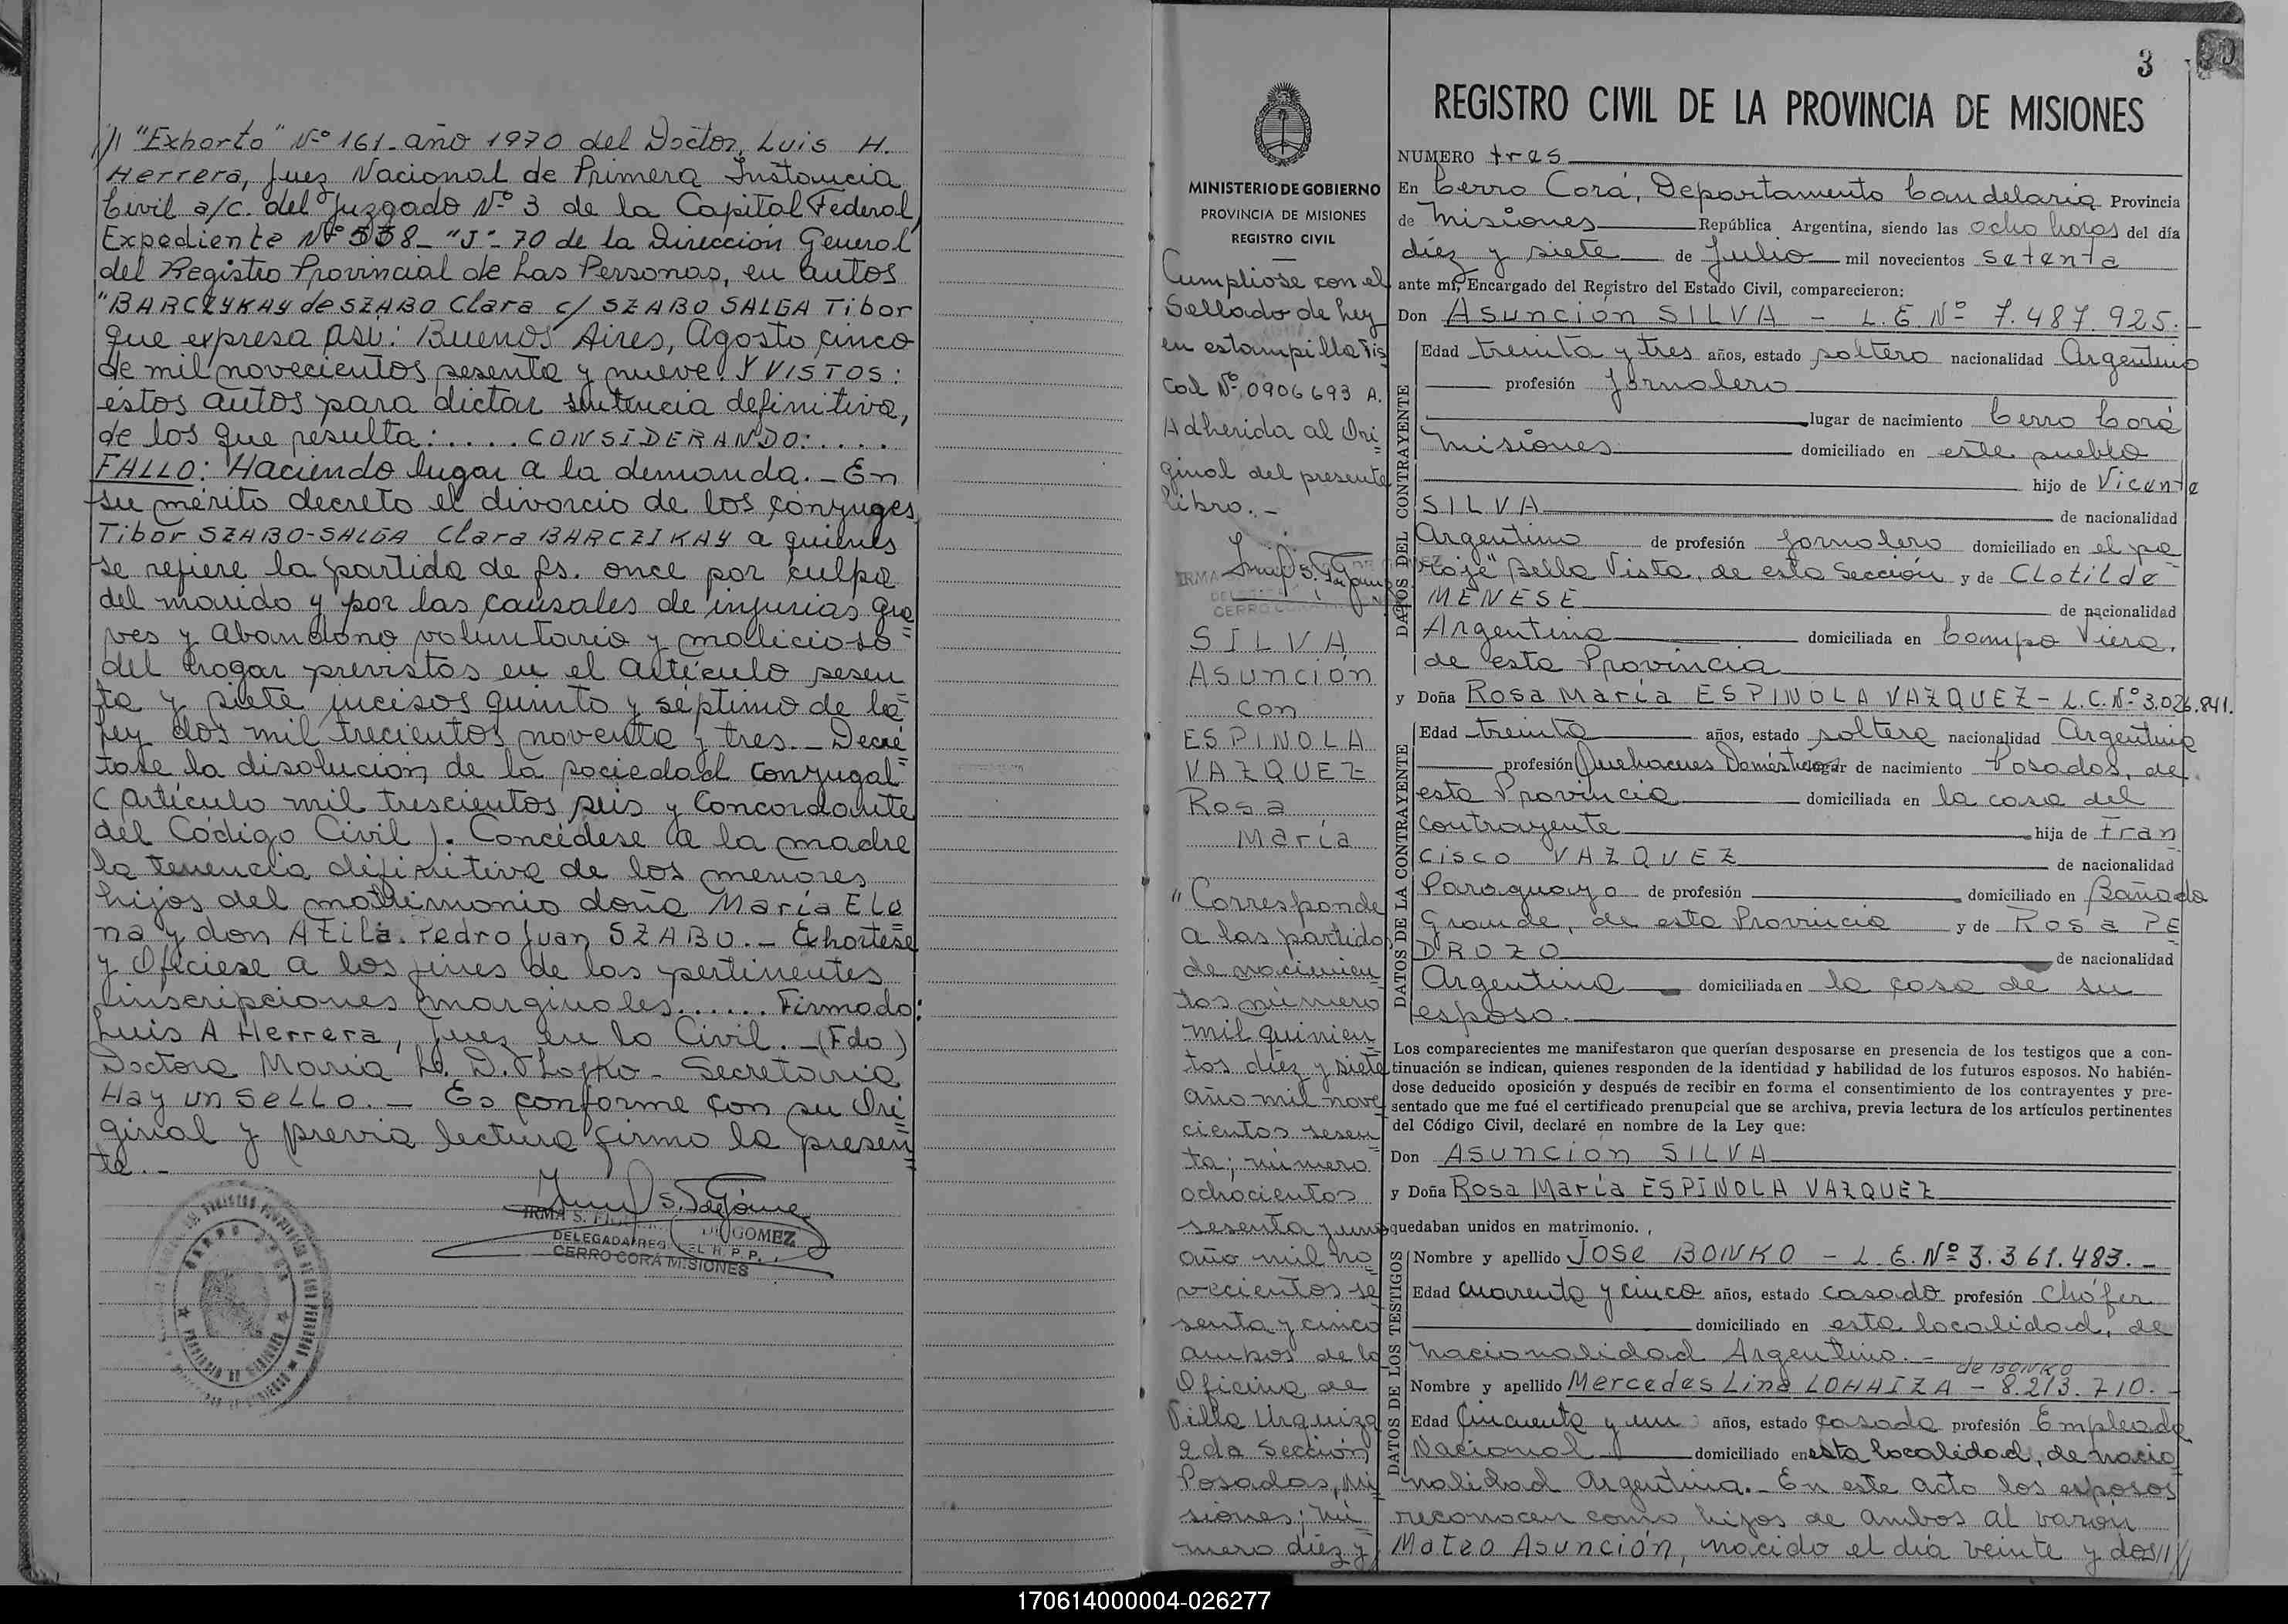 //"Exhorto" Nº 161-año 1970 del Doctor Luis H.
Herrera, Juez Nacional de Primera Instancia
Civil a/c. del Juzgado Nº 3 de la Capital Federal,
Expediente Nº 558- "J"- 70 de la Dirección General
del Registro Provincial de las Personas, en autos
"BARCZYKAY de SZABO Clara c/ SZABO SALGA Tibor
que expresa así: Buenos Aires, Agosto cinco
de mil novecientos sesenta y nueve. Y VISTOS:
éstos autos para dictar sentencia definitiva,
de los que resulta: .... CONSIDERANDO: ....
FALLO: Haciendo lugar a la demanda.- En
su mérito decreto el divorcio de los cónyuges
Tibor SZABO-SALGA Clara BARCZIKAY a quienes
se refiere la partida de fs. once por culpa
del marido y por las causales de injurias gra=
ves y abandono voluntario y malicioso
del hogar previstos en el artículo sesen=
ta y siete incisos quinto y séptimo de la
ley dos mil trecientos noventa y tres.- Decré=
tase la disolución de la sociedad conyugal
(artículo mil trescientos seis y concordante
del Código Civil). Concédese a la madre
la tenencia definitiva de los menores
hijos del matrimonio doña María Ele=
na y don Atila Pedro Juan SZABO.- Exhortese
y Ofíciese a los fines de las pertinentes
inscripciones marginales...... Firmado:
Luis A Herrera, Juez en lo Civil.-(Fdo)
Doctora María L. D. - Secretaria
Hay un SELLO.- Es conforme con su Ori=
ginal y previa lectura firmo la presen=
te.-
IRMA S. DE GOMEZ
DELEGADA REG. DEL R. P. P.
CERRO CORÁ MISIONES
3
MINISTERIO DE GOBIERNO
PROVINCIA DE MISIONES
REGISTRO CIVIL
Cumpliose con el
Sellado de Ley
en estampilla Fis
cal Nº 0906693 A.
Adherida al Ori=
ginal del presente
libro.-
SILVA
Asunción
con
ESPINOLA
VAZQUEZ
Rosa
María
"Corresponde
a las partidas
de nacimien
tos número
mil quinien=
tos diéz y siete
año mil nove
cientos sesen=
ta; número
ochocientos
sesenta y uno
año mil no=
vecientos se=
senta y cinco
ambos de la
Oficina de
Villa Urquiza
2da Sección
Posadas, Mi=
siones; nú=
mero diéz y
REGISTRO CIVIL DE LA PROVINCIA DE MISIONES
NUMERO tres
En Cerro Corá, Departamento Candelaria Provincia
de Misiones República Argentina, siendo las ocho horas del día
diéz y siete de Julio mil novecientos setenta
ante mí, Encargado del Registro del Estado Civil, comparecieron:
Don Asunción SILVA - L.E Nº 7.487.925.-
DATOS DEL CONTRAYENTE
Edad treinta y tres años, estado soltero nacionalidad Argentino
profesión Jornalero
lugar de nacimiento Cerro Corá
Misiones domiciliado en este pueblo
hijo de Vicente
SILVA de nacionalidad
Argentino de profesión Jornalero domiciliado en el pa=
raje" Bella Vista, de esta Sección y de Clotilde
MENESE de nacionalidad
Argentina domiciliada en Campo Viera,
de esta Provincia
y Doña Rosa María ESPINOLA VAZQUEZ - L.C. Nº 3.026.841.
DATOS DE LA CONTRAYENTE
Edad treinta años, estado soltera nacionalidad Argentina
profesión Quehaceres Domésticos lugar de nacimiento Posadas, de
esta Provincia domiciliada en la casa del
contrayente hija de Fran
cisco VAZQUEZ de nacionalidad
Paraguayo de profesión domiciliado en Bañado
Grande, de esta Provincia y de Rosa PE=
DROZO de nacionalidad
Argentina domiciliada en la casa de su
esposo.
Los comparecientes me manifestaron que querían desposarse en presencia de los testigos que a con-
tinuación se indican, quienes responden de la identidad y habilidad de los futuros esposos. No habién-
dose deducido oposición y después de recibir en forma el consentimiento de los contrayentes y pre-
sentado que me fué el certificado prenupcial que se archiva, previa lectura de los artículos pertinentes
del Código Civil, declaré en nombre de la Ley que:
Don Asunción SILVA
y Doña Rosa María ESPINOLA VAZQUEZ
quedaban unidos en matrimonio.
DATOS DE LOS TESTIGOS
Nombre y apellido José BONKO - L.E. Nº 3.361.483.-
Edad cuarenta y cinco años, estado casado profesión Chófer
domiciliado en esta localidad, de
nacionalidad Argentino.-
de BONKO
Nombre y apellido Mercedes Lina LOHAIZA - 8.213.710.-
Edad Cincuenta y un años, estado casada profesión Empleada
Nacional domiciliado en esta localidad, de nacio
nalidad Argentina.- En este acto los esposos
reconocen como hijos de ambos al varón
Mateo Asunción, nacido el día veinte y dos//
170614000004-026277